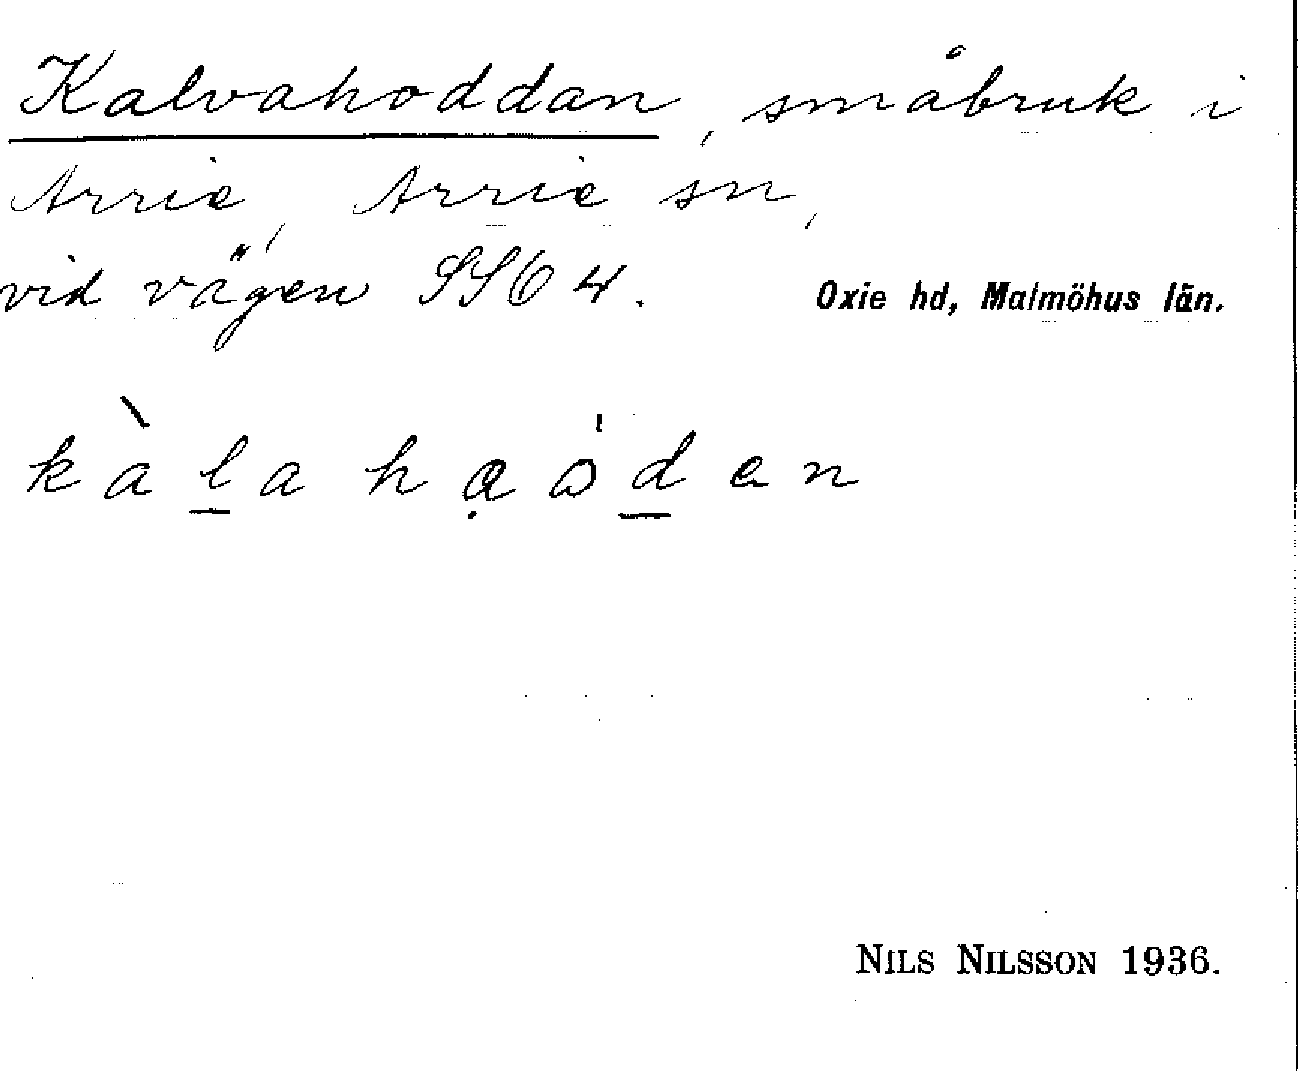 Kalvahoddan, småbruk i
Arrie, Arrie sn,
vid vägen SS64.
Oxie hd, Malmöhus län.
NILS NILSSON 1936.